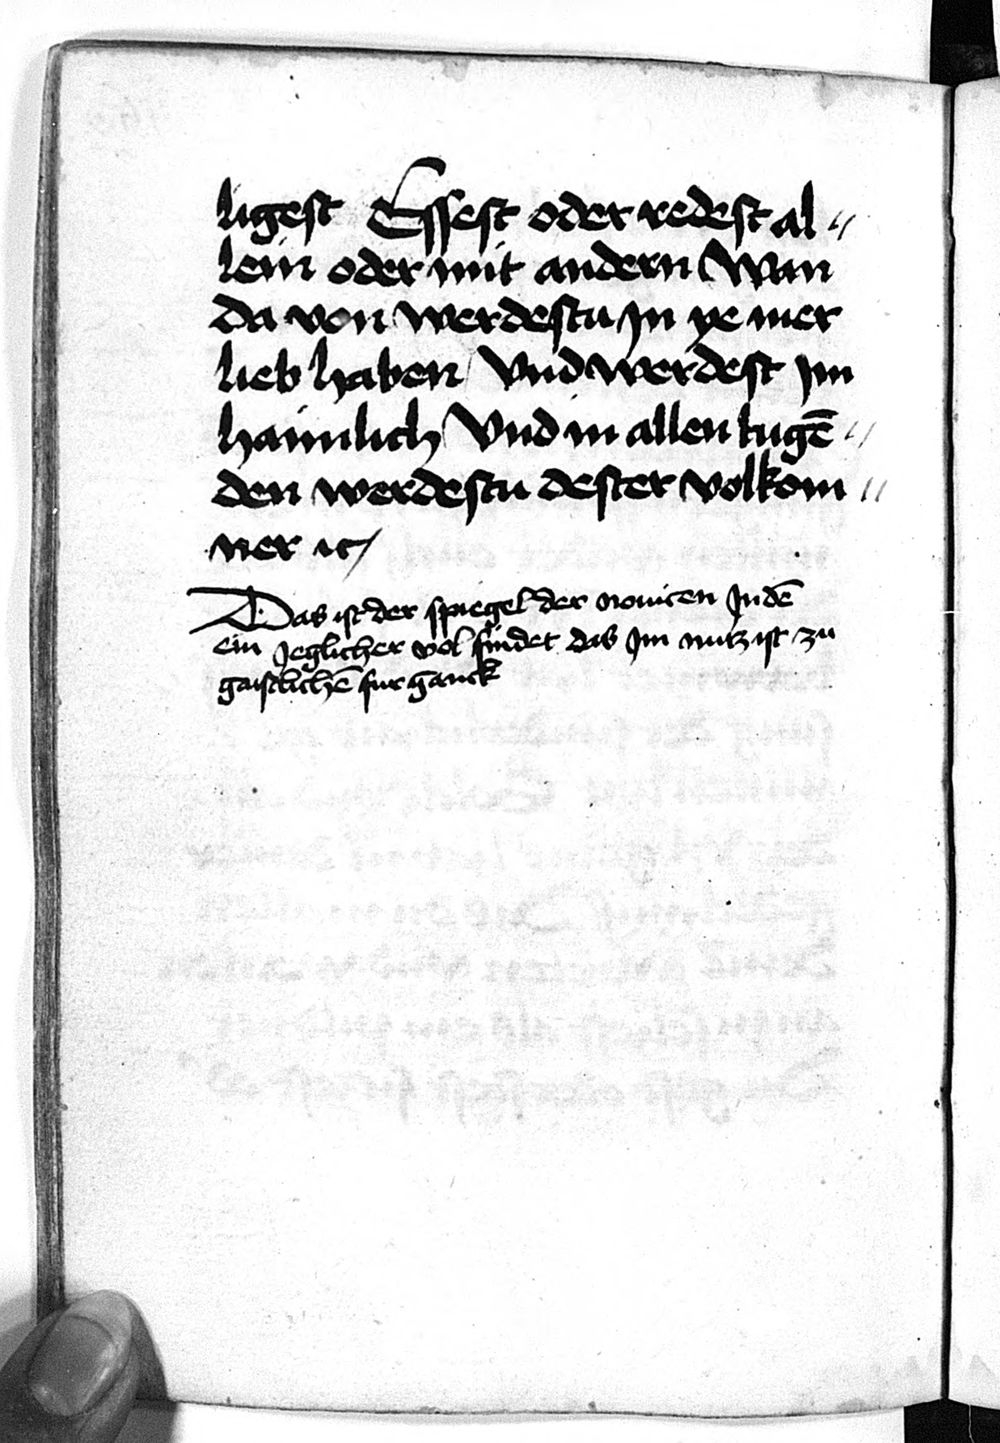 ligest Essest oder redest al //
lein oder mit andern Wan
da von werdestu Jn ye mer
lieb haben / Vnd werdest Jm
haimlich / Vnd in allen tugē //
den werdestu dester volkom //
ner ıc /
Das ist der spiegel der nouicen Jn dē
ein Jeglicher vol findet das Jm nutz ist zu
gaistlichē fur ganck